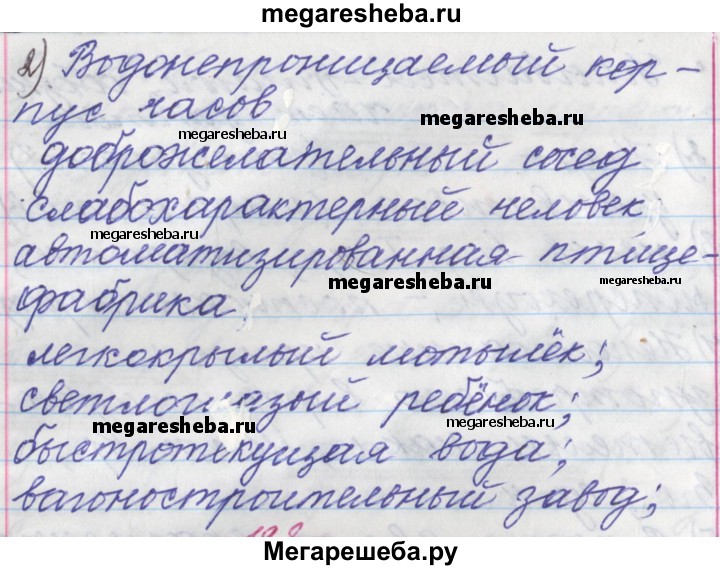 megaresheba.ru
2) Водонепроницаемый кор-
пус часов
megaresheba.ru
megaresheba.ru
доброжелательный сосед
слабохарактерный человек
megaresheba.ru
автоматизированная птице-
megaresheba.ru
megaresheba.ru
фабрика
легкокрылый мотылёк;
светлоглазый ребёнок;
megaresheba.ru
быстротекущая вода;
megaresheba.ru
вагоностроительный завод;
Мегарешеба.ру